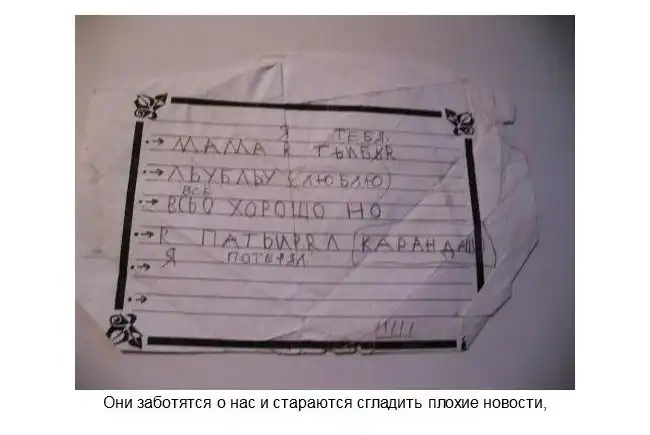 Я ТЕБЯ
МАМА Я ТЬЕБЯ
ЛЬУБЛЬУ (ЛЮБЛЮ)
ВСЕ
ВСЬО ХОРОШО НО
Я (КАРАНДАШ)
Я ПОТЕРЯЛ
Они заботятся о нас и стараются сгладить плохие новости,